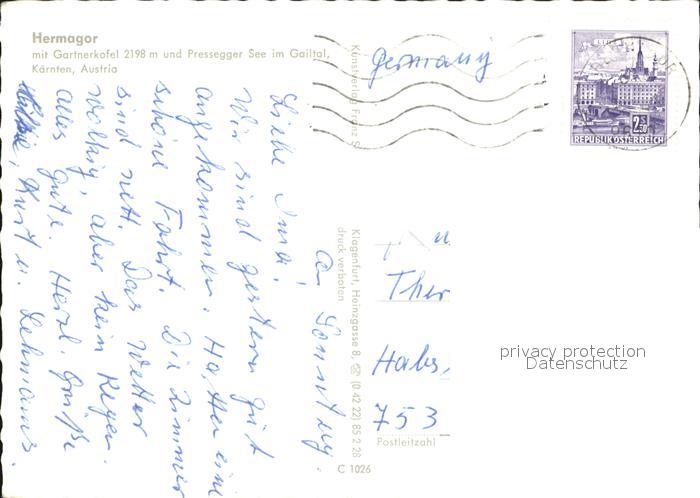 Hermagor
mit Gartnerkofel 2198 m und Pressegger See im Gailtal,
Kärnten, Austria
Germany
WIEN
2.50
REPUBLIK ÖSTERREICH
Kunstverlag Franz S
Klagenfurt, Heinzgasse 8, ☎ (0 42 22) 85 2 28
druck verboten
C 1026
am Sonntag.
Liebe
Wir sind gestern gut
angekommen. Hatten eine
schöne Fahrt. Die Zimmer
sind nett. Das Wetter
wolkig, aber kein Regen.
Alles Gute. Herzl. Grüße
Kurt u. Lehmanns.
u.
Ther
753
Postleitzahl
privacy protection
Datenschutz